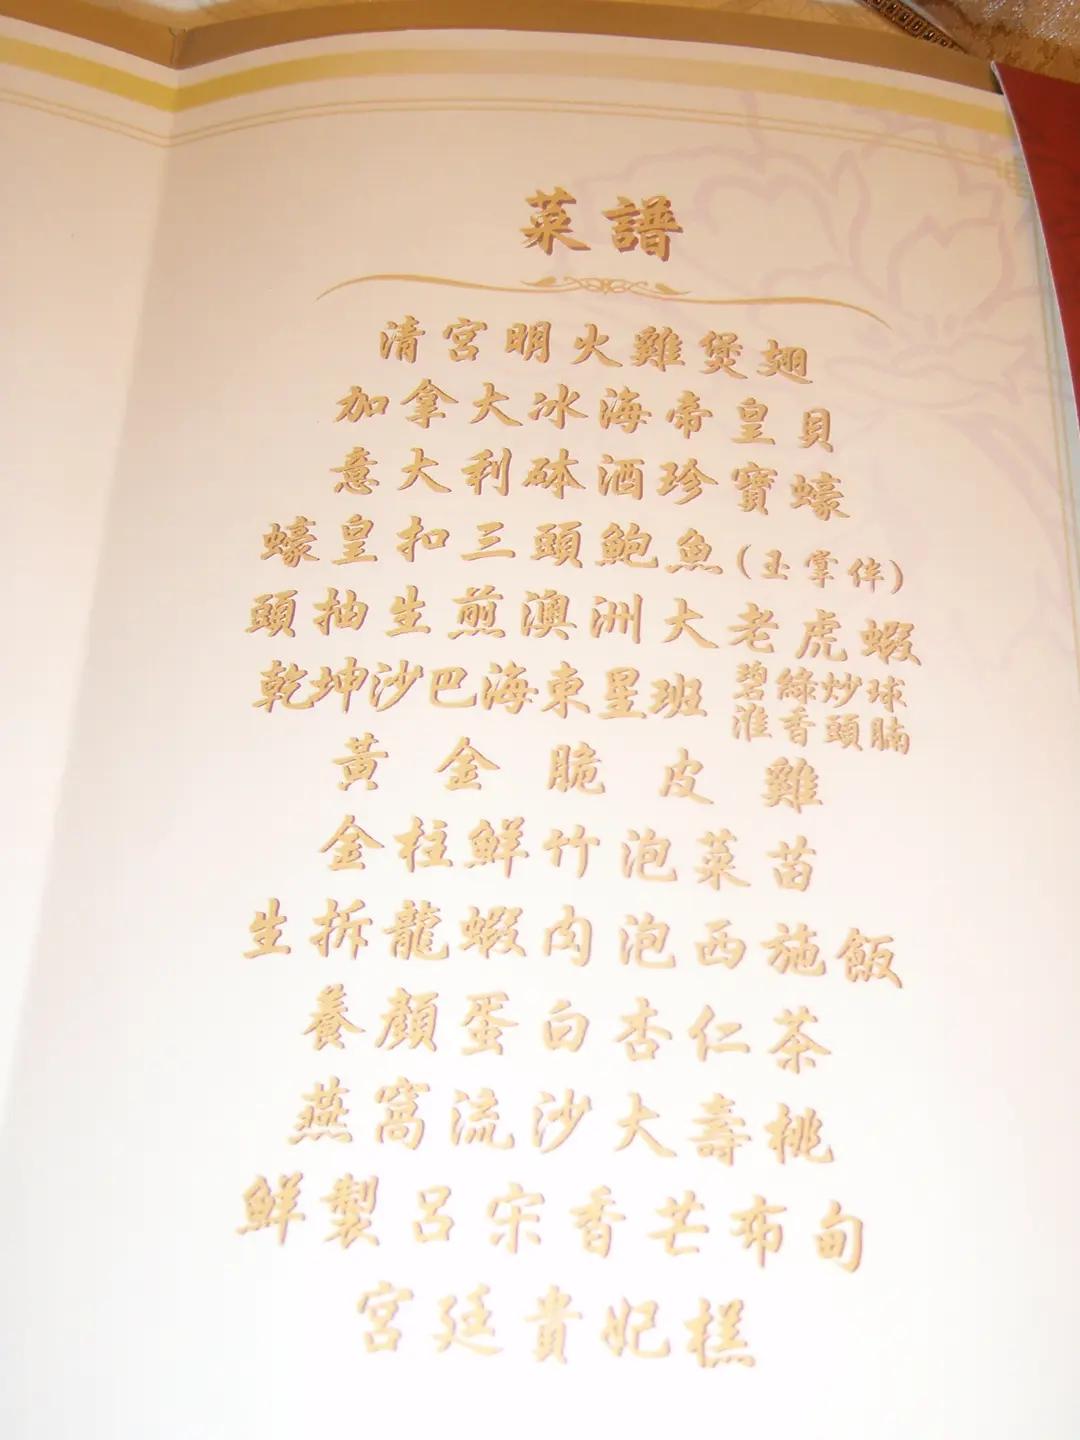 菜譜
清宮明火雞煲翅
加拿大冰海帝皇貝
意大利砵酒珍寶蠔
蠔皇扣三頭鮑魚(玉掌伴)
頭抽生煎澳洲大老虎蝦
乾坤沙巴海東星班 碧綠炒球
淮香頭腩
黃金脆皮雞
金柱鮮竹泡菜苗
生拆龍蝦肉泡西施飯
養顏蛋白杏仁茶
燕窩流沙大壽桃
鮮製呂宋香芒布甸
宮廷貴妃糕